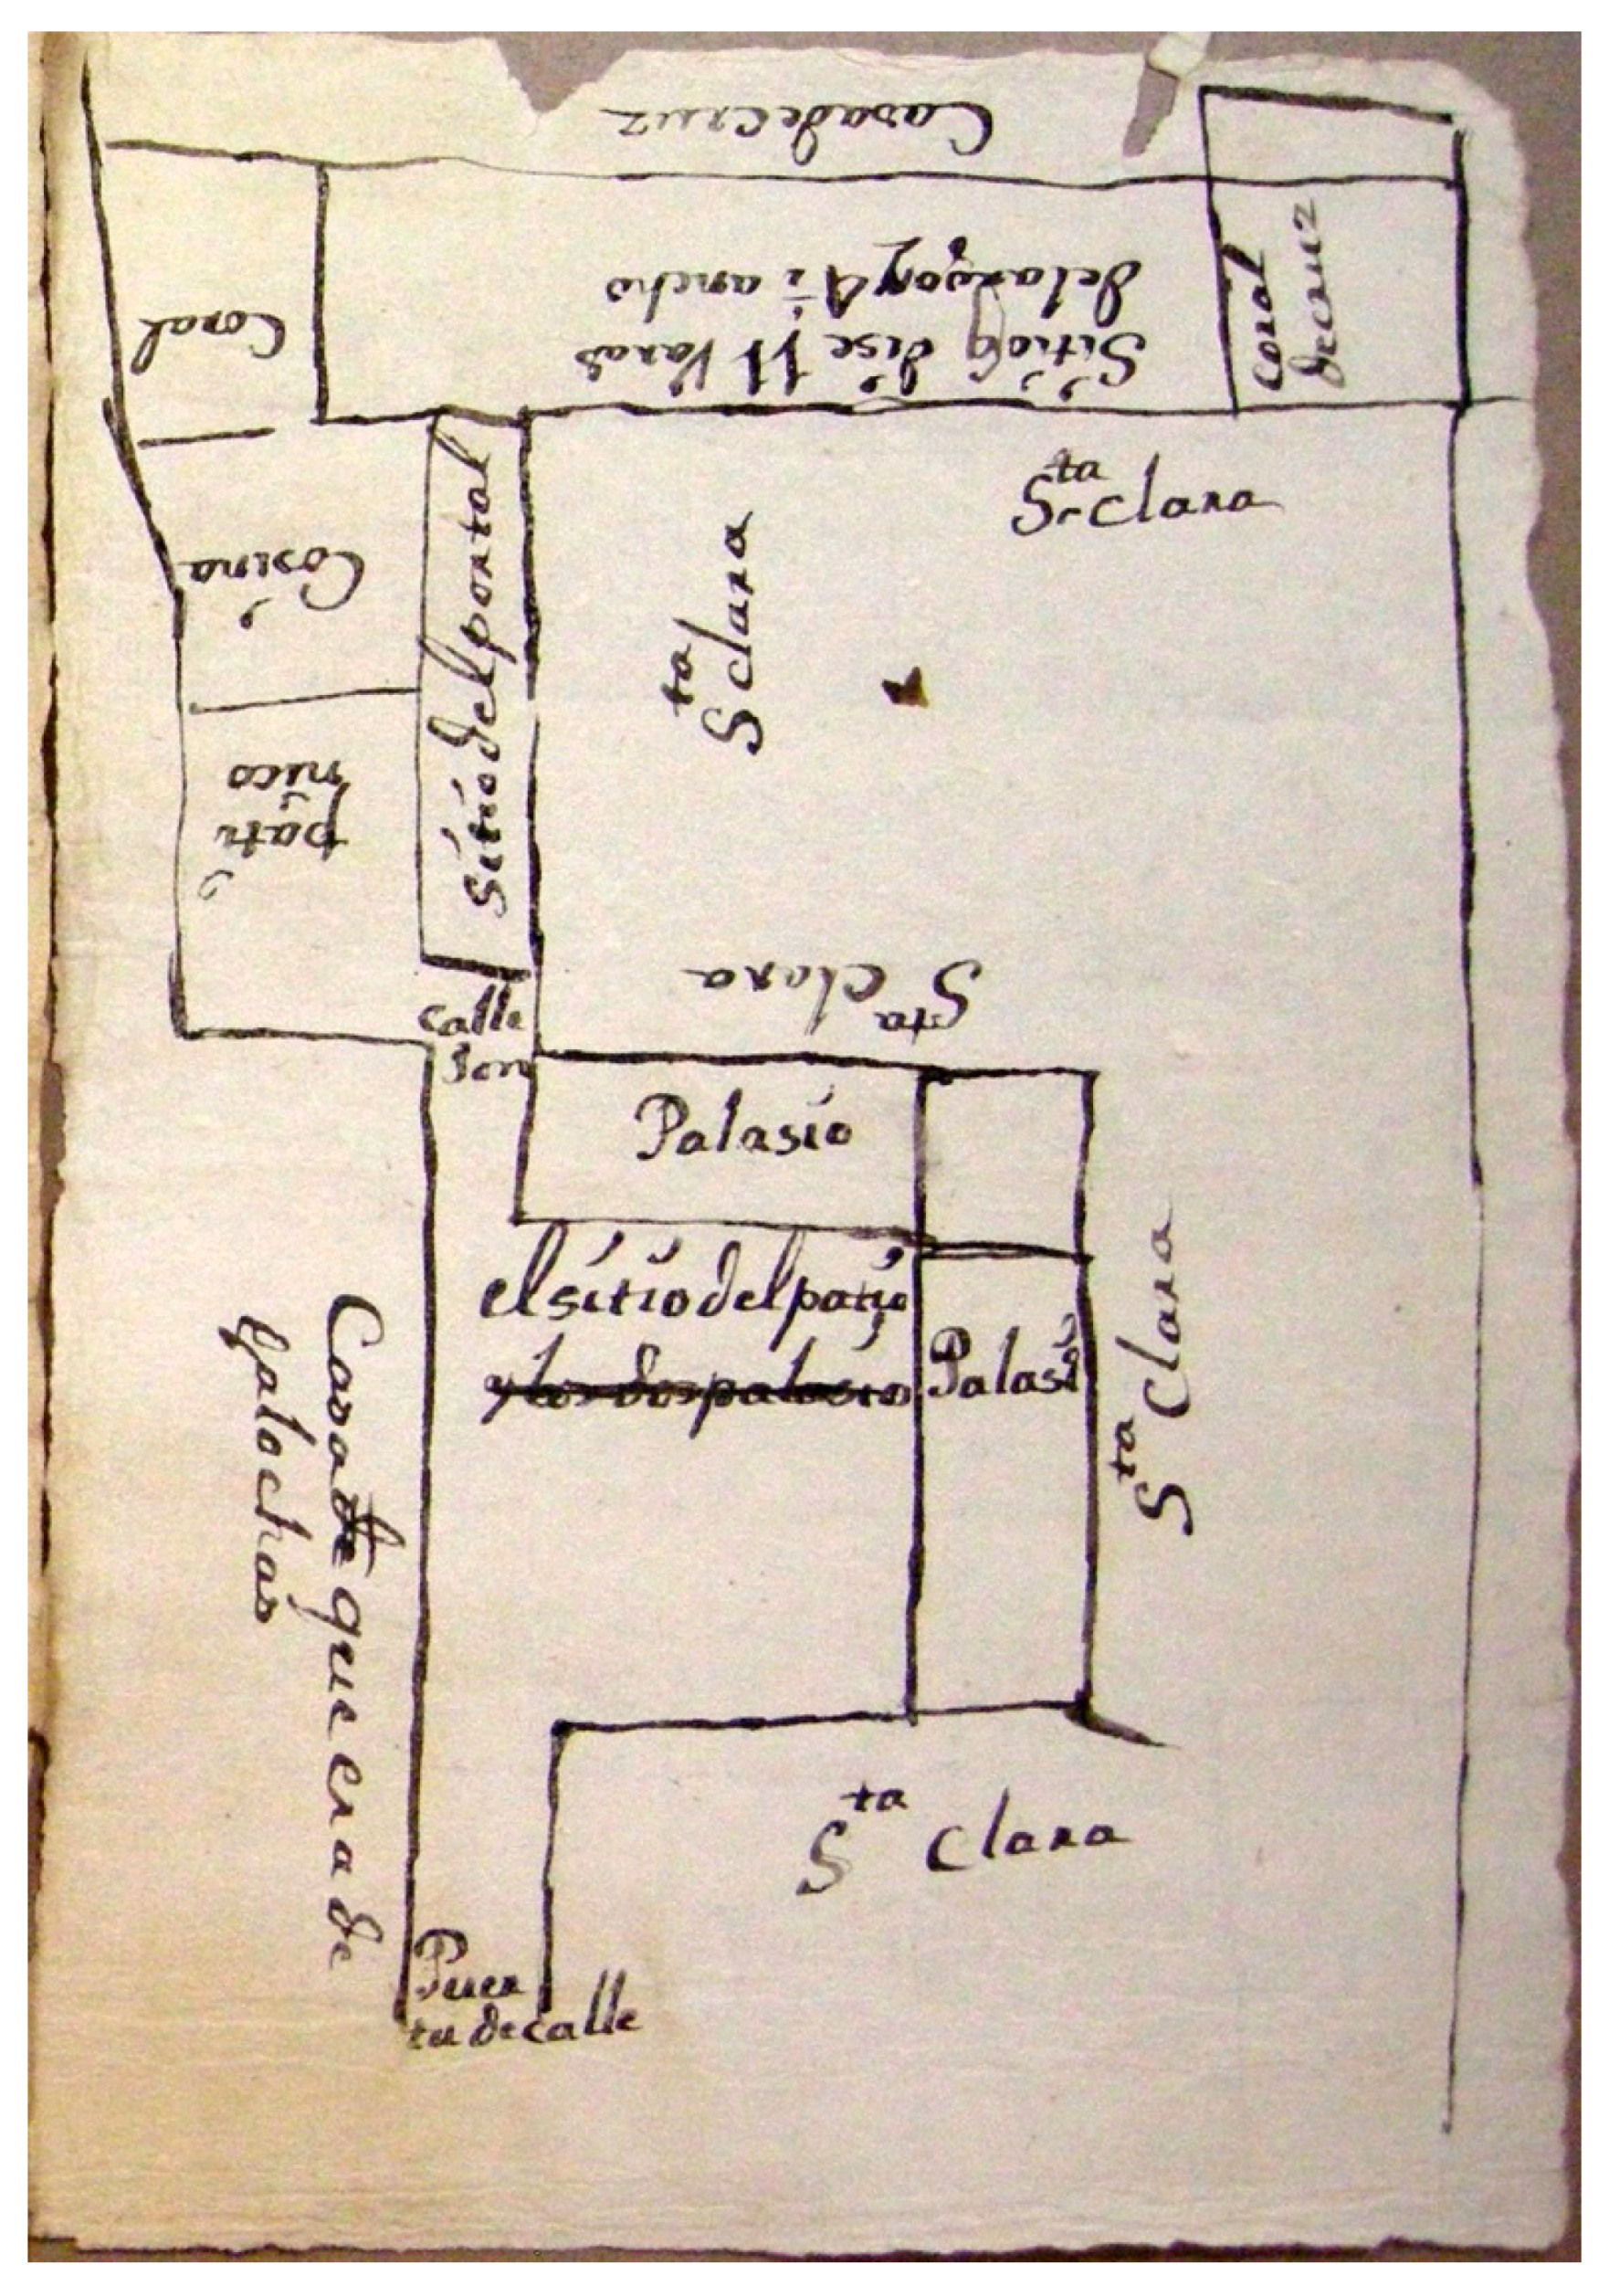 Casa de cruz
Sitio q dise 11 Varas
de largo y 4 i ancho
coral
de cruz
Coral
Cosina
pati
nico
Sitio del portal
Sta clara
Sta clara
Sta Clara
calle
Jon
Palasio
el sitio del patio
y los dos palasios
Palasi
Sta Clara
Casa de que era de
galochas
Sta Clara
Puer
ta de calle